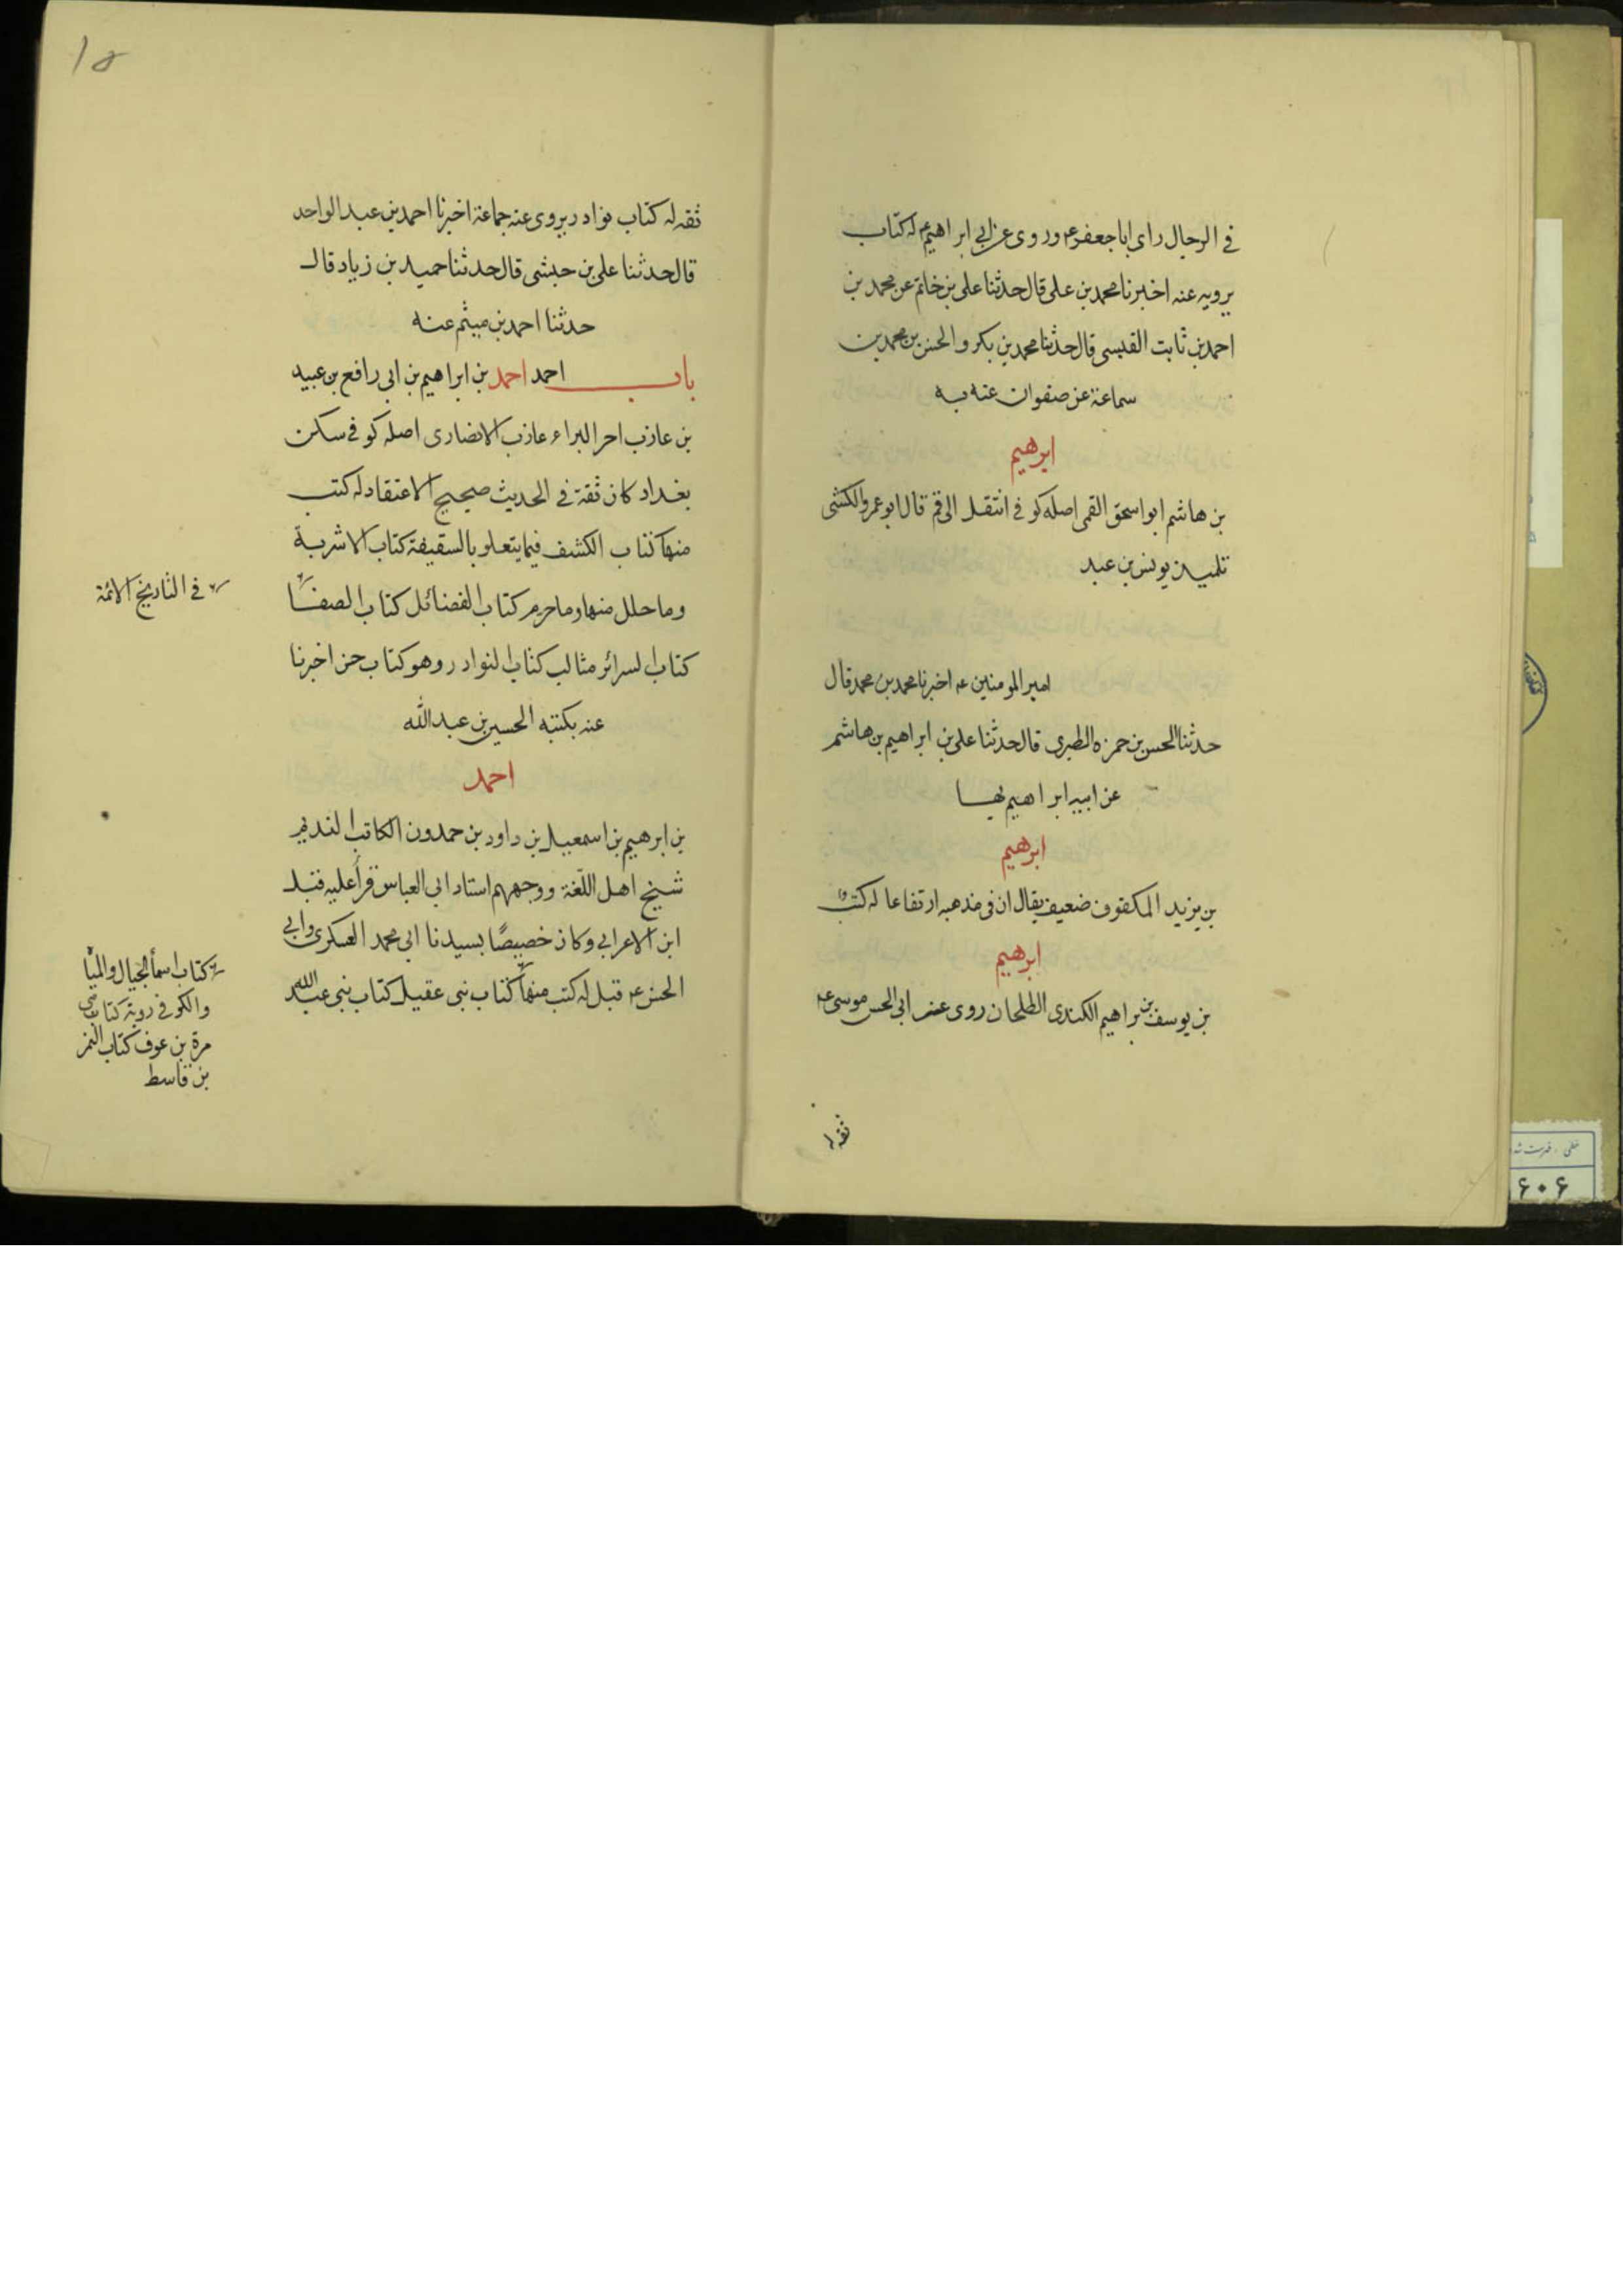 في الرجال راى ابا جعفر ع وروى عن ابي ابراهيم ع له كتاب
يرويه عنه اخبرنا محمد بن على قال حدثنا على بن خاتم عن محمد بن
احمد بن ثابت القيسى قال حدثنا محمد بن بكر والحسن بن محمد بن
سماعة عن صفوان عنه به
ابرهيم
بن هاشم ابو اسحق القمى اصله كوفى انتقل الى قم قال ابو عمرو الكشى
تلميذ يونس بن عبد
امير المومنين ع اخبرنا محمد بن محمد قال
حدثنا الحسن بن حمزه الطبرى قال حدثنا على بن ابراهيم بن هاشم
عن ابيه ابراهيم بها
ابرهيم
بن يزيد المكفوف ضعيف يقال ان فى مذهبه ارتفاعا له كتب
ابرهيم
بن يوسف بن براهيم الكندى الطلحان روى عنه ابى الحسن موسى ع
ثقه له
١٥
ثقه له كتاب نوادر يروى عنه جماعة اخبرنا احمد بن عبد الواحد
قال حدثنا على بن حبشى قال حدثنا حميد بن زياد قال
حدثنا احمد بن ميثم عنه
باب احمد احمد بن ابراهيم بن ابى رافع بن عبيد
بن عازب اخر البراء عازب الانصارى اصله كوفى سكن
بغداد كان ثقة فى الحديث صحيح الاعتقاد له كتب
منها كتاب الكشف فيما يتعلو بالسقيفة كتاب الاشربة
وما حلل منها وما حرم كتاب الفضائل كتاب الصفا
فى التاريخ الائمة
كتاب السرائر مثالب كتاب النوادر وهو كتاب حسن اخبرنا
عنه بكتبه الحسين بن عبد الله
احمد
بن ابرهيم بن اسمعيل بن داود بن حمدون الكاتب النديم
شيخ اهل اللغة ووجههم استاد ابى العباس قرأ عليه قبل
ابن الاعرابى وكان خصيصًا بسيدنا ابى محمد العسكرى وابى
الحسن ع قبل له كتب منها كتاب بنى عقيل كتاب بنى عبد الله
كتاب اسما الجبال والميا
مرة بن عوف كتاب النمر
بن قاسط